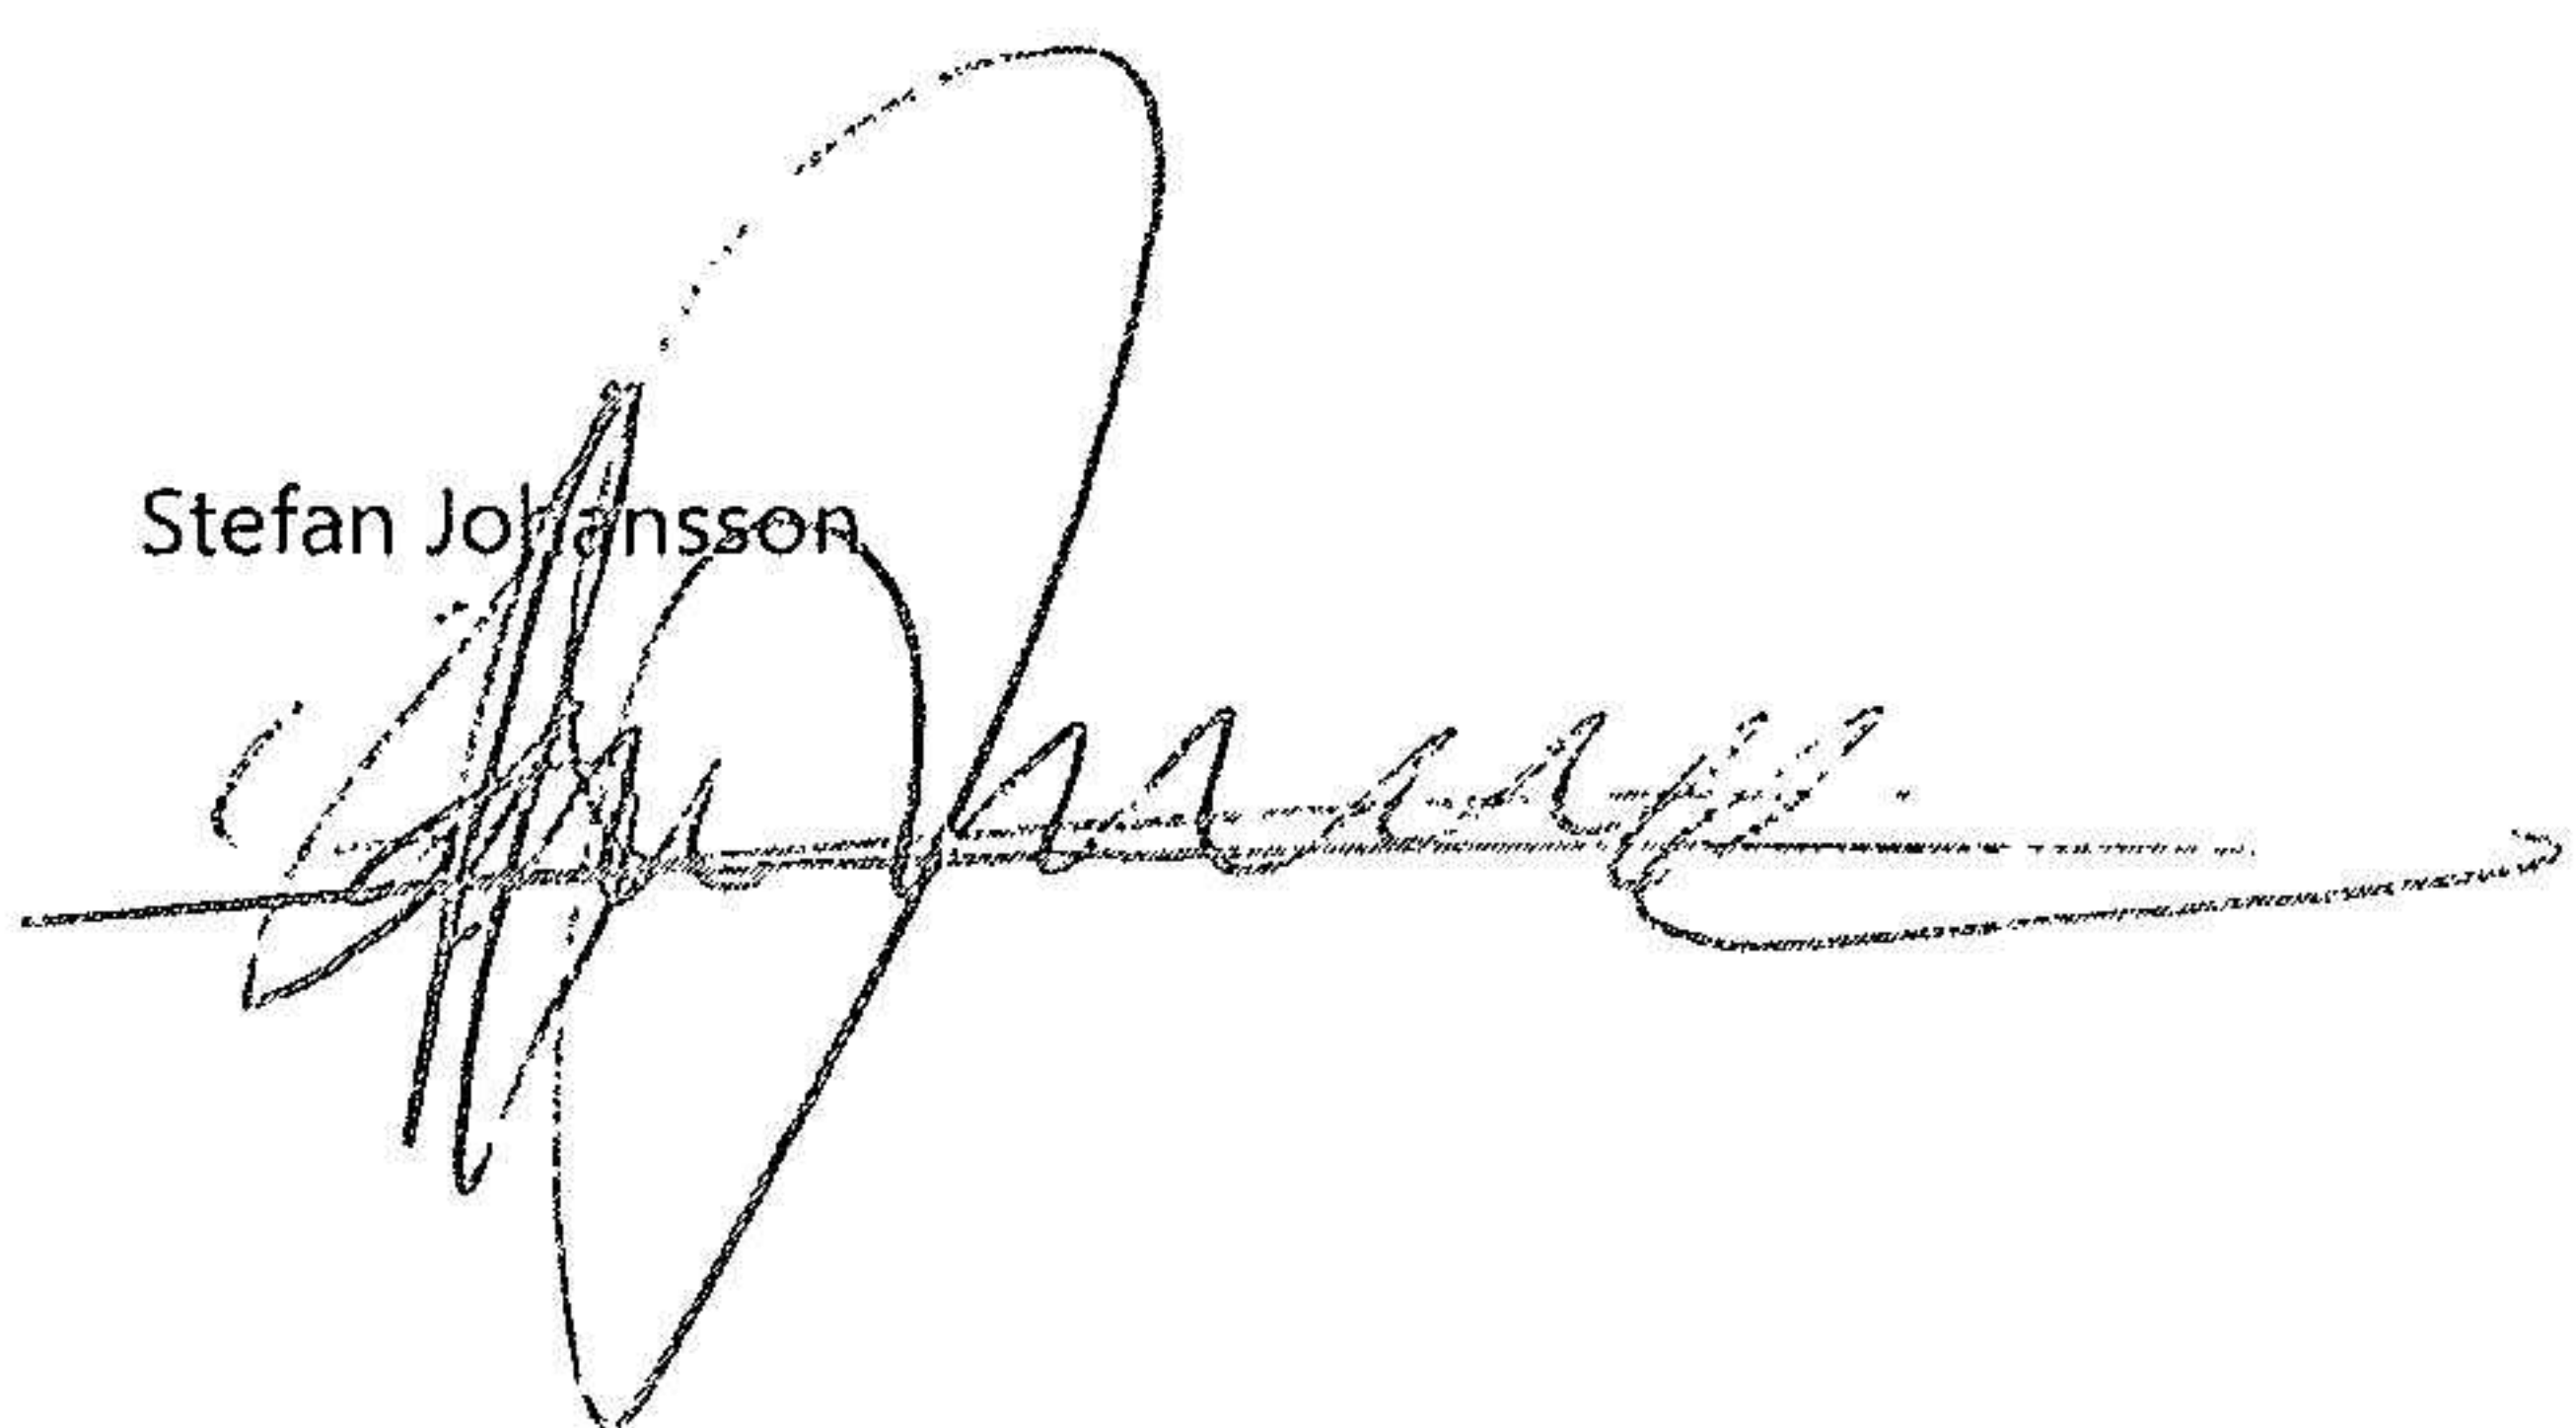 Stefan Johansson